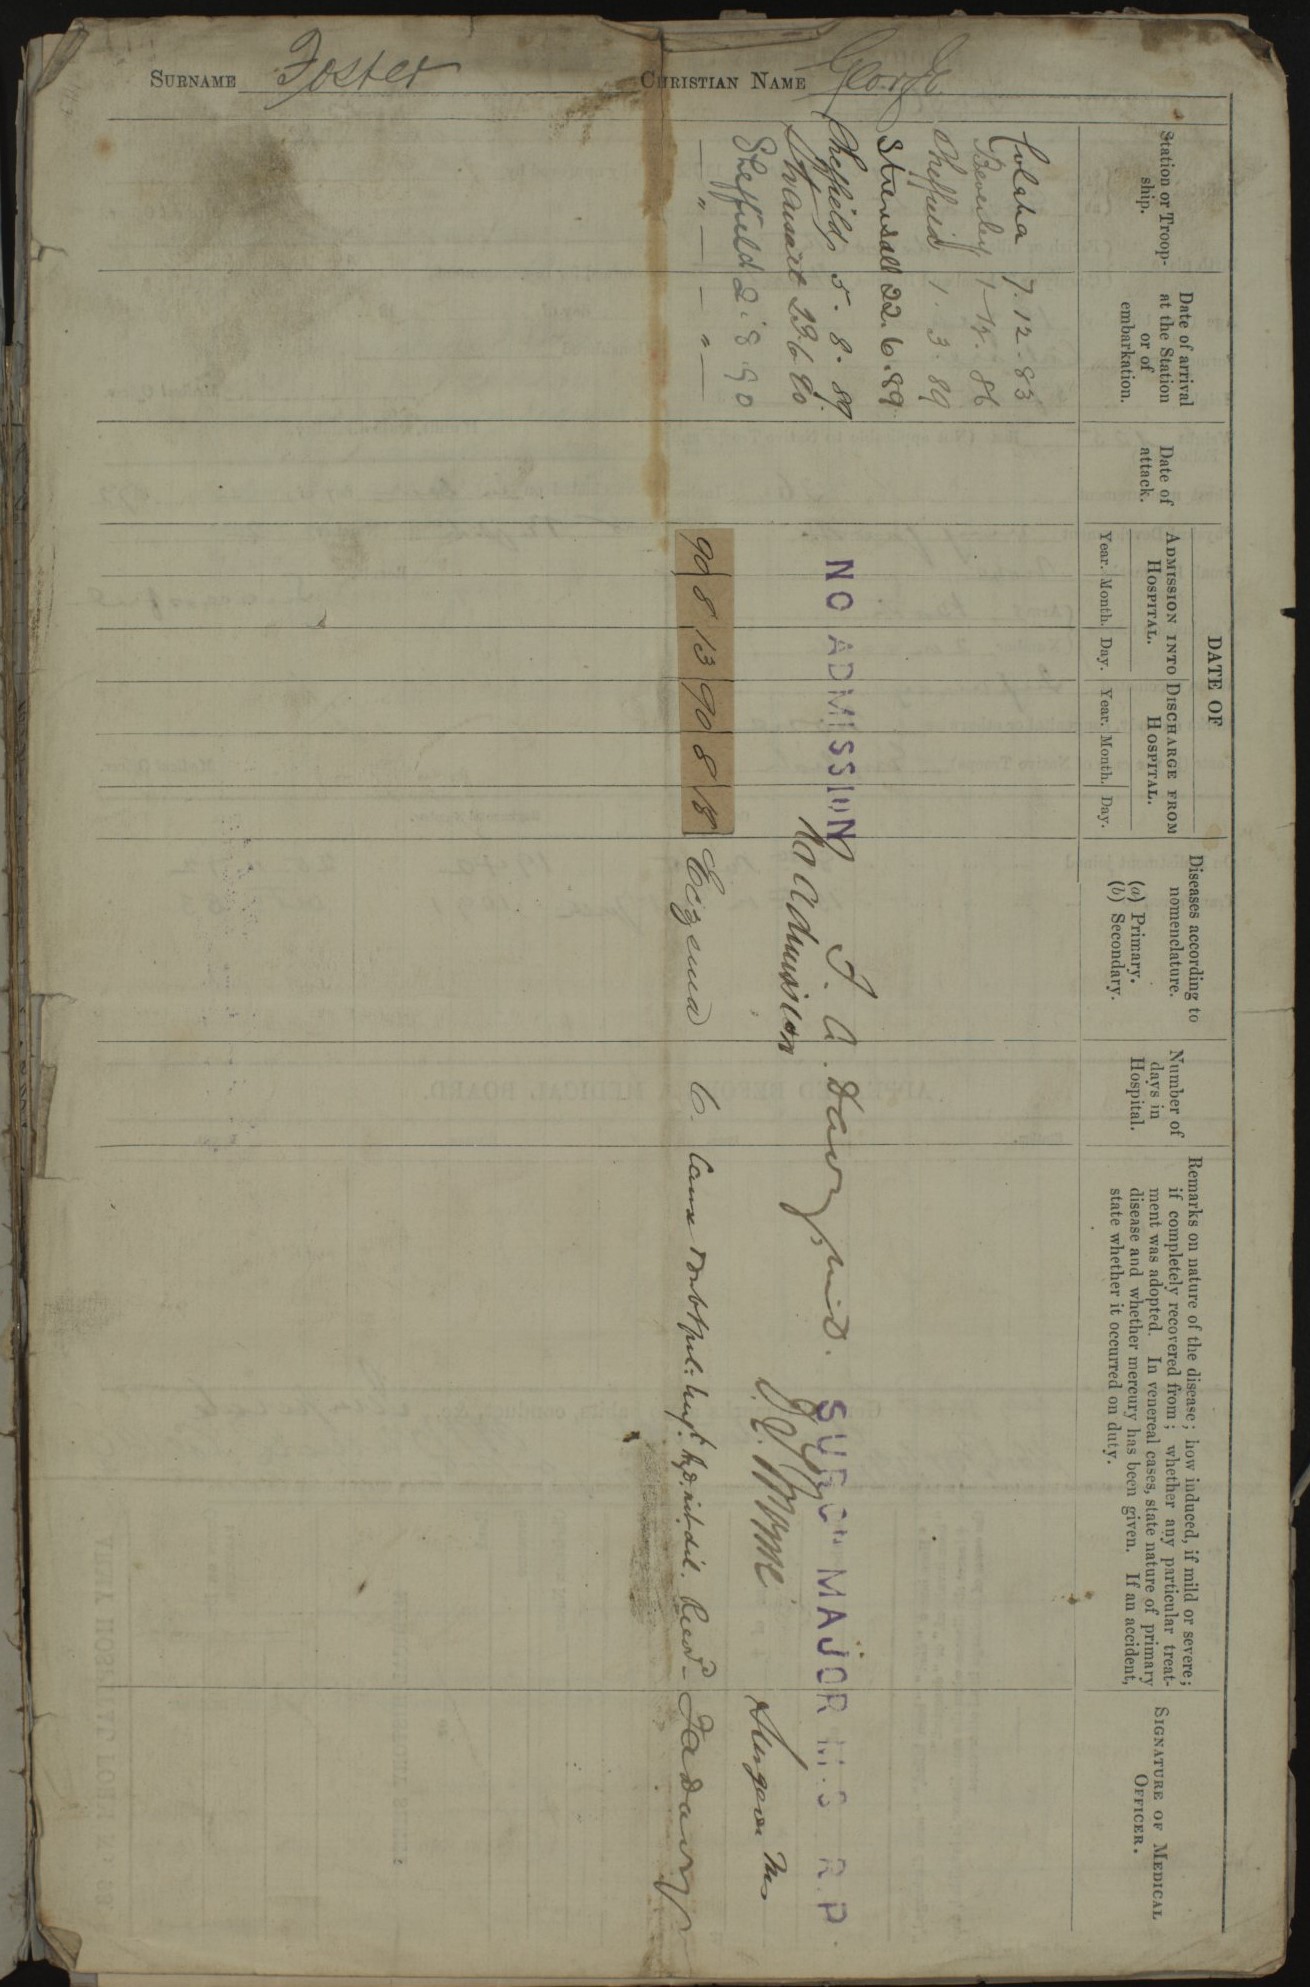 SURNAME Foster CHRISTIAN NAME George
Station or Troop-
ship.
Date of arrival
at the Station
or of
embarkation.
Date of
attack.
DATE OF
ADMISSION INTO
HOSPITAL.
Year. Month. Day.
DISCHARGE FROM
HOSPITAL.
Year. Month. Day.
Diseases according to
nomenclature.
(a) Primary.
(b) Secondary.
Number of
days in
Hospital.
Remarks on nature of the disease; how induced, if mild or severe;
if completely recovered from; whether any particular treat-
ment was adopted. In venereal cases, state nature of primary
disease and whether mercury has been given. If an accident,
state whether it occurred on duty.
SIGNATURE OF MEDICAL
OFFICER.
Colaba 7.12.83
Beverley
Sheffield 1.3.89
Strensall 22.6.89
Sheffield 5.8.89
NO ADMISSION
SURGN MAJOR M.S. R.P.
23.6.90
No admission
Surgeon
Sheffield 2.8.90
— " — — " —
90 8 13 90 8 18 Eczema 6.